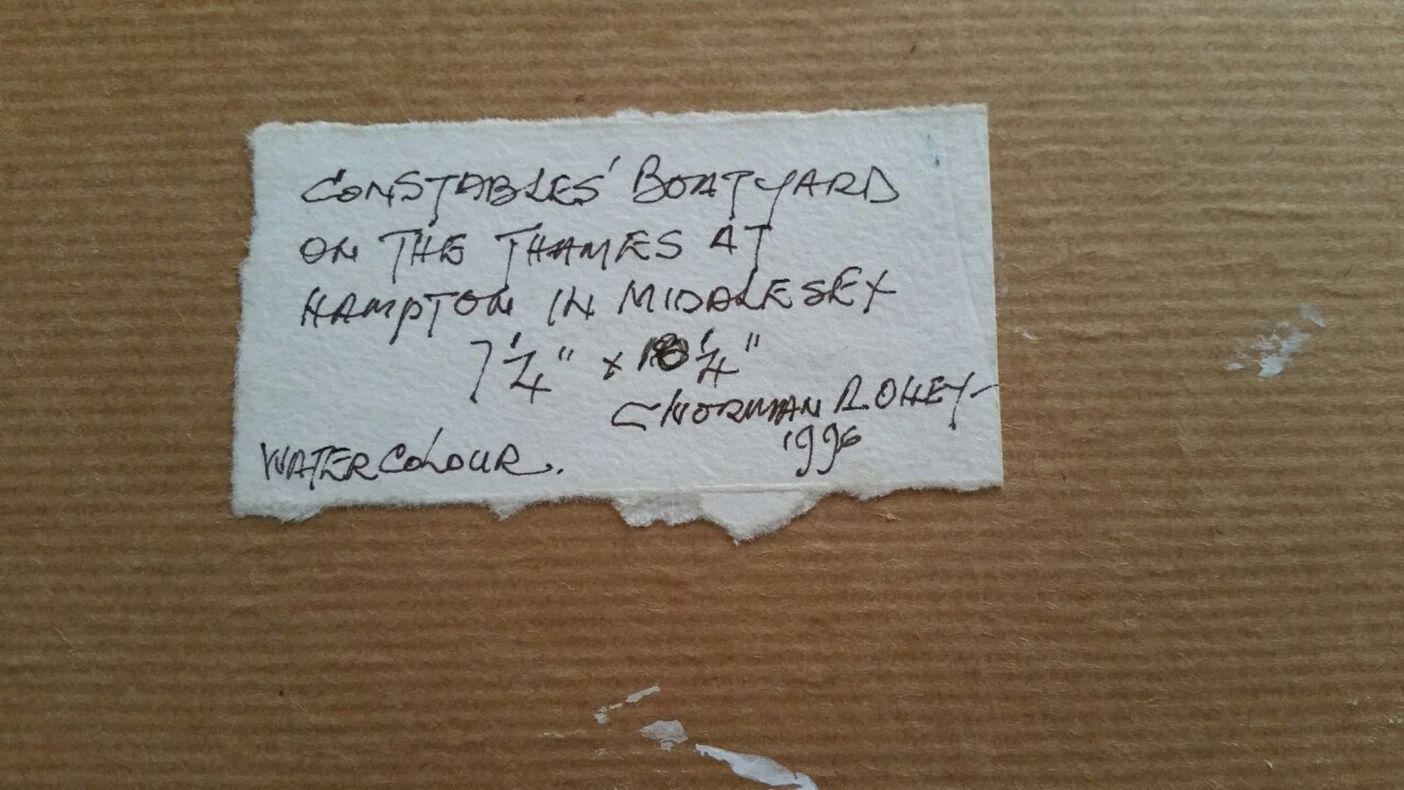 CONSTABLES' BOATYARD
ON THE THAMES AT
HAMPTON IN MIDDLESEX
7 1/4" x 1/4"
NORMAN
1996
WATERCOLOUR.